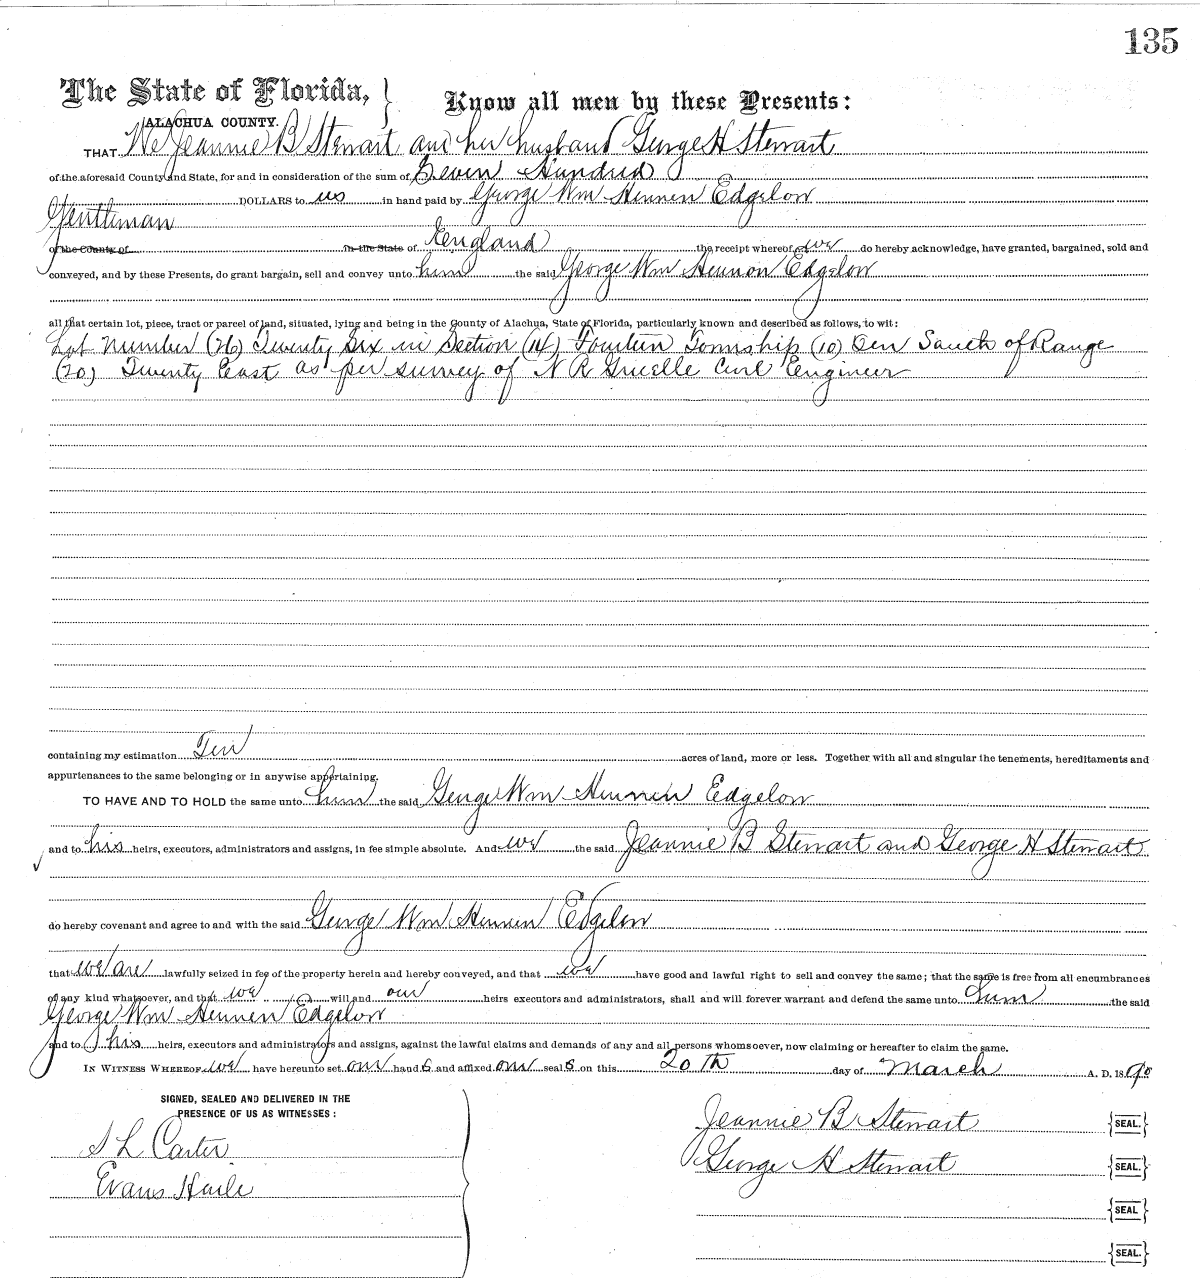 135
The State of Florida,
ALACHUA COUNTY.
Know all men by these Presents:
THAT We Jeannie B Stewart and her husband George H Stewart
of the aforesaid County and State, for and in consideration of the sum of Seven Hundred
DOLLARS to us in hand paid by George Wm Hennen Edgelow
Gentleman
of the County of in the State of England the receipt whereof we do hereby acknowledge, have granted, bargained, sold and
conveyed, and by these Presents, do grant bargain, sell and convey unto him the said George Wm Hennen Edgelow
all that certain lot, piece, tract or parcel of land, situated, lying and being in the County of Alachua, State of Florida, particularly known and described as follows, to wit:
Lot Number (26) Twenty Six in Section (14) Fourteen Township (10) Ten South of Range
(20) Twenty East as per survey of N R Gruelle Civil Engineer
containing my estimation Ten acres of land, more or less. Together with all and singular the tenements, hereditaments and
appurtenances to the same belonging or in anywise appertaining.
TO HAVE AND TO HOLD the same unto him the said George Wm Hennen Edgelow
and to his heirs, executors, administrators and assigns, in fee simple absolute. And we the said Jeannie B Stewart and George H Stewart
do hereby covenant and agree to and with the said George Wm Hennen Edgelow
that we are lawfully seized in fee of the property herein and hereby conveyed, and that we have good and lawful right to sell and convey the same; that the same is free from all encumbrances
of any kind whatsoever, and that we will and our heirs executors and administrators, shall and will forever warrant and defend the same unto him the said
George Wm Hennen Edgelow
and to his heirs, executors and administrators and assigns, against the lawful claims and demands of any and all persons whomsoever, now claiming or hereafter to claim the same.
IN WITNESS WHEREOF we have hereunto set our hand s and affixed our seal s on this 20th day of March A. D. 1890
SIGNED, SEALED AND DELIVERED IN THE
PRESENCE OF US AS WITNESSES:
S L Carter
Evans Haile
Jeannie B Stewart SEAL.
George H Stewart SEAL.
SEAL
SEAL.